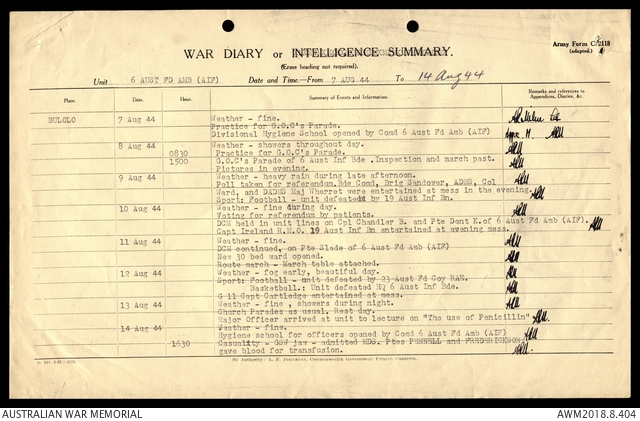 Army Form C.2118
(adapted.)
WAR DIARY or INTELLIGENCE SUMMARY.
(Erase heading not required).
Unit 6 AUST FD AMB (AIF) Date and Time.—From 7 AUG 44 To 14 Aug 44
Place. Date Hour. Summary of Events and Information. Remarks and references to Appendices, Diaries, &c.
BULOLO 7 Aug 44 Weather - fine.
Practice for G.O.C's Parade.
Divisional Hygiene School opened by Comd 6 Aust Fd Amb (AIF)
8 Aug 44 Weather - showers throughout day.
0830 Practice for G.O.C's Parade.
1500 G.O.C's Parade of 6 Aust Inf Bde . Inspection and march past.
Pictures in evening.
9 Aug 44 Weather - heavy rain during late afternoon.
Poll taken for referendum. Bde Comd, Brig Sandover, ADMS, Col
Ward, and DADMS Maj Wherret were entertained at mess in the evening.
Sport: Football - unit defeated by 19 Aust Inf Bn.
10 Aug 44 Weather - fine during day.
Voting for referendum by patients.
DCM held in unit lines on Cpl Chandler B. and Pte Dent K. of 6 Aust Fd Amb (AIF).
Capt Ireland R.M.O. 19 Aust Inf Bn entertained at evening mess.
11 Aug 44 Weather - fine.
DCM continued, on Pte Slade of 6 Aust Fd Amb (AIF)
New 30 bed ward opened.
Route march - March table attached.
12 Aug 44 Weather - fog early, beautiful day.
Sport: Football - unit defeated by 23 Aust Fd Coy RAE.
Basketball.: Unit defeated HQ 6 Aust Inf Bde.
G 11 Capt Cartledge entertained at mess.
13 Aug 44 Weather - fine , showers during night.
Church Parades as usual. Rest day.
Major Officer arrived at unit to lecture on "The use of Penicillin"
14 Aug 44 Weather - fine.
Hygiene School for officers opened by Comd 6 Aust Fd Amb (AIF)
1630 Casualty - GSW jaw - admitted MDS. Ptes PENNELL and FREDERICKSON
gave blood for transfusion.
By Authority: L. F. Johnston, Commonwealth Government Printer, Canberra.
AUSTRALIAN WAR MEMORIAL AWM2018.8.404